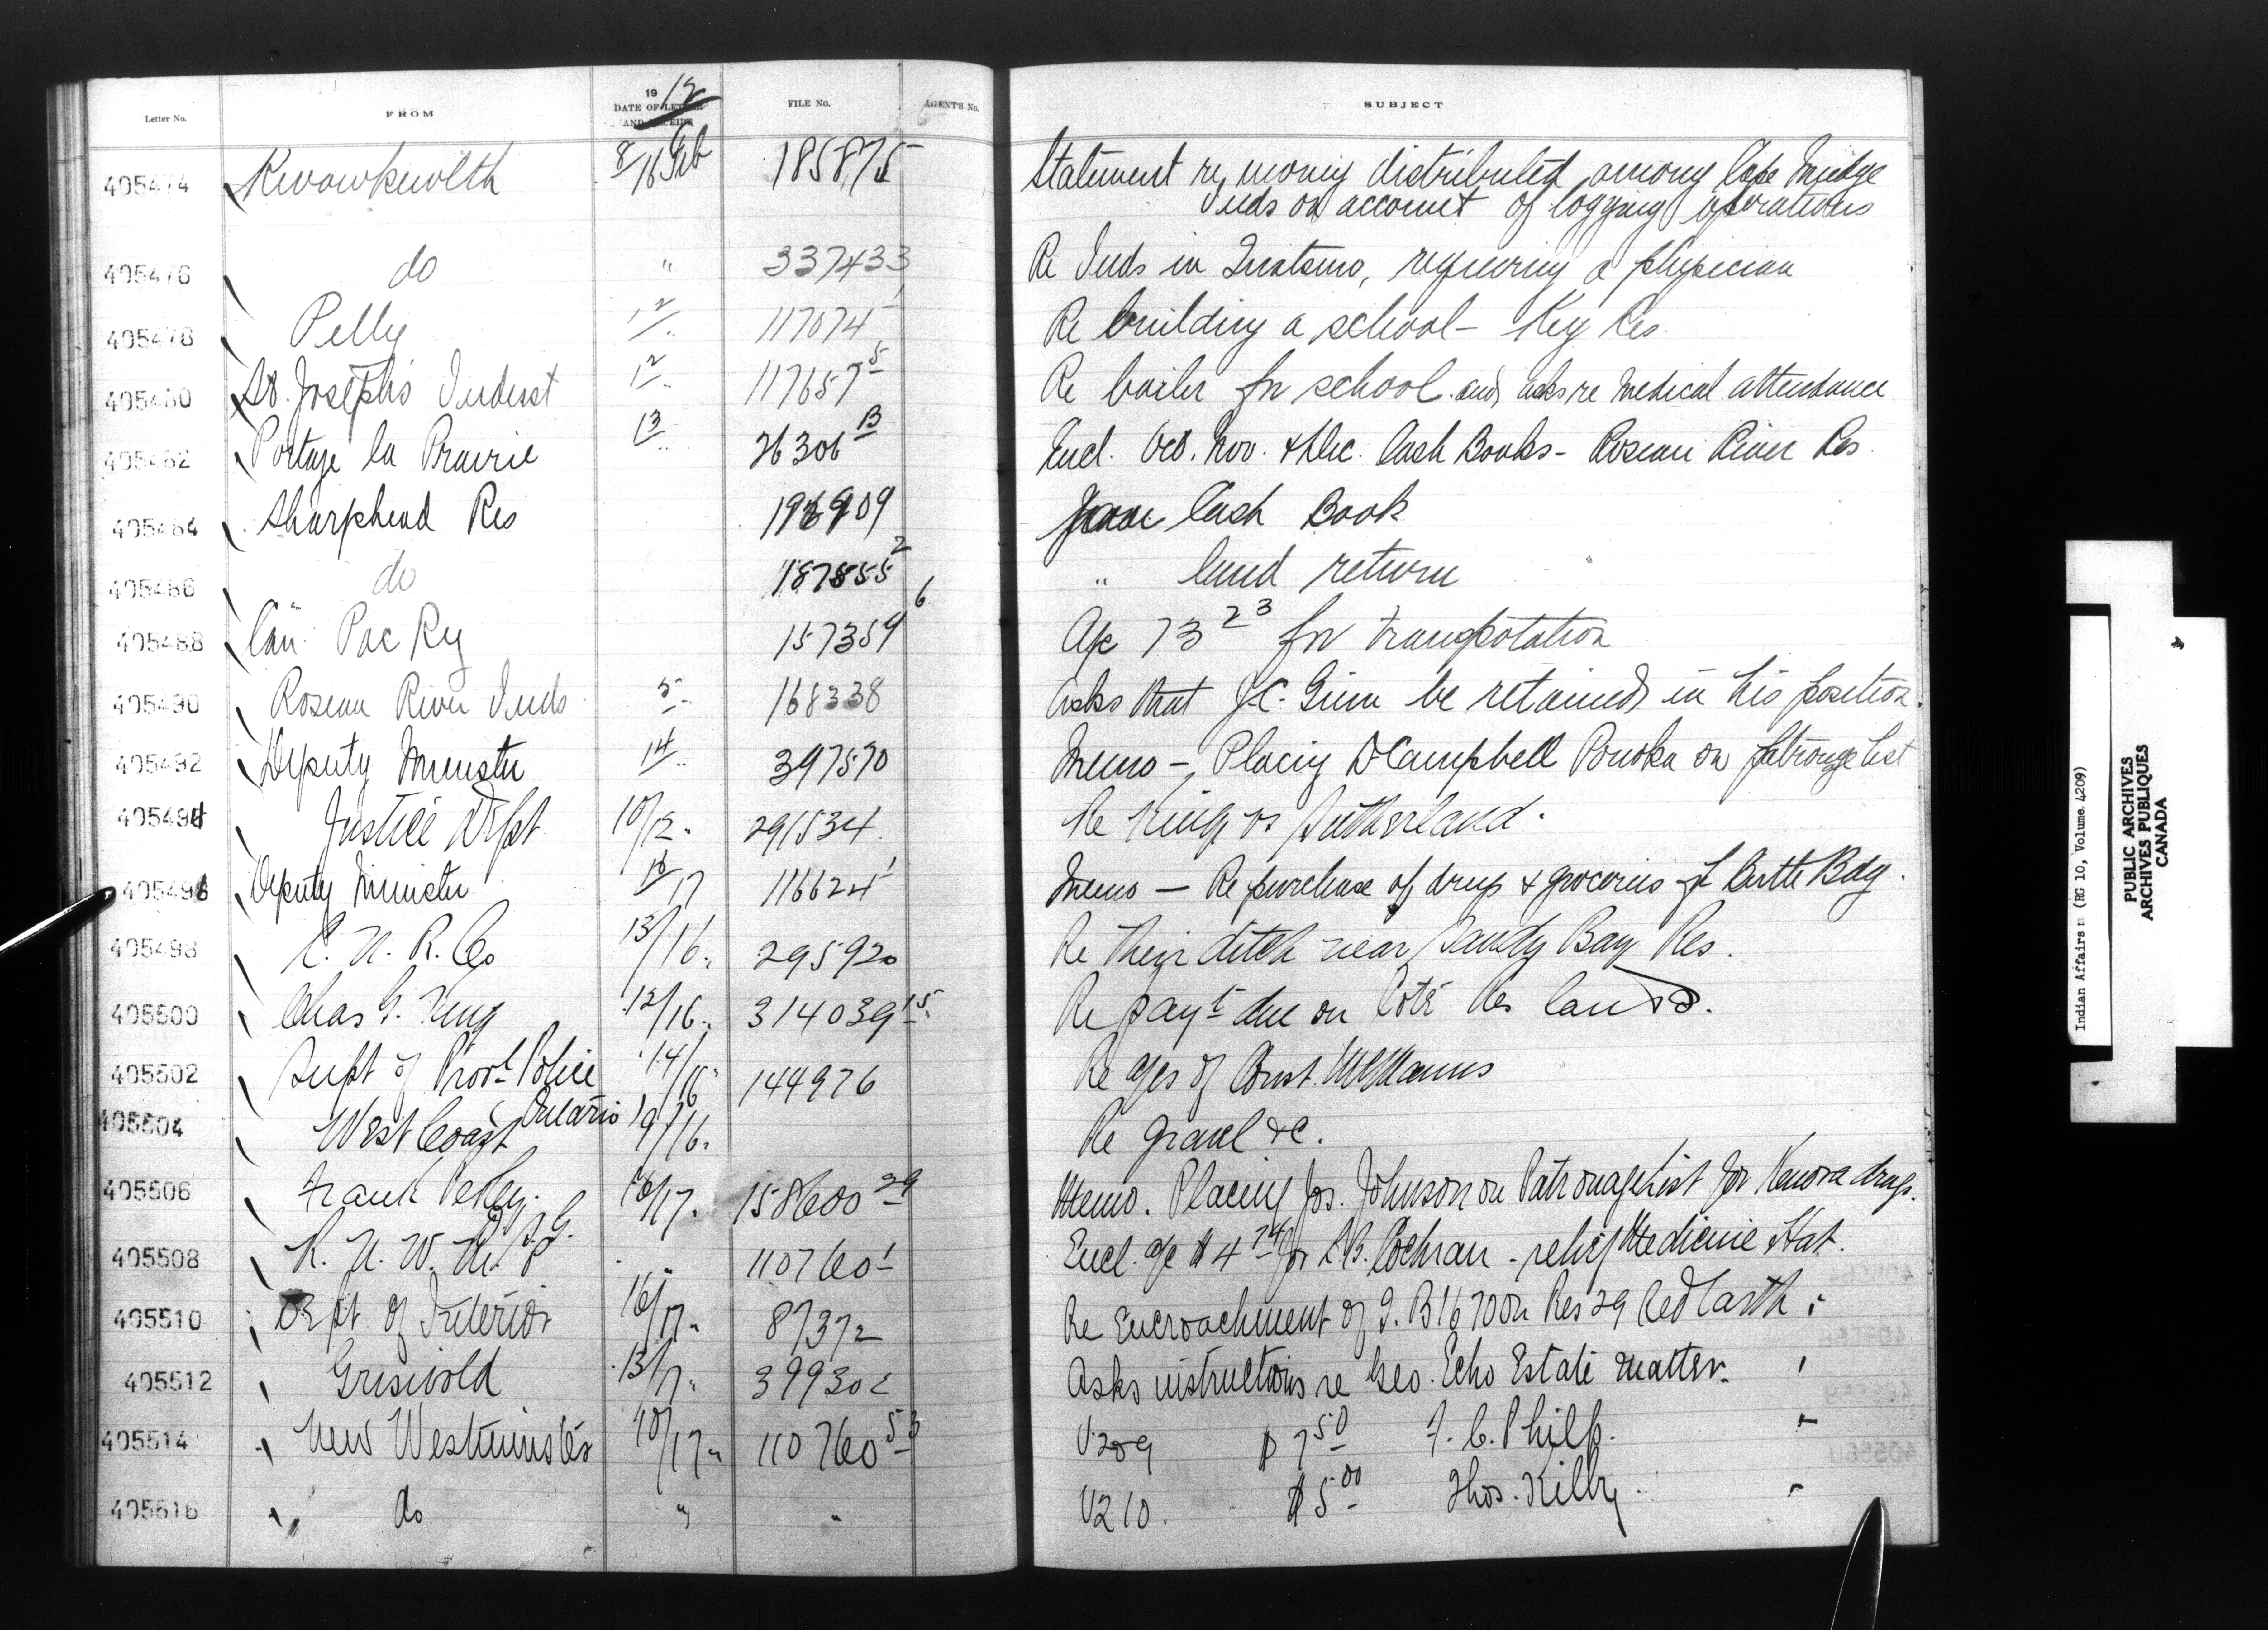 Letter No. FROM 19 12 DATE OF LETTER AND RECEIPT FILE No. AGENT'S No. SUBJECT
405474 Kwawkewlth 8/16 Feb 185875 Statement re money distributed among Cape Mudge
Inds on account of logging operations
405476 do " 337433 Re Inds in Quatsino, requiring a physician
405478 Pelly 12/" 117074 1 Re building a school - Key Res.
405480 St. Joseph's Indust 12/" 117657 5 Re boiler for school and asks re medical attendance
405482 Portage la Prairie 13/" 26306 B Encl. Oct. Nov. & Dec. Cash Books - Roseau River Res.
405484 Sharphead Res Cash Book
405486 do 187855 2 " land return "
405488 Can. Pac Ry 157359 6 A/c 73 23 for transpotation
405490 Roseau River Inds 5/" 168338 Asks that J.C. Ginn be retained in his position.
405492 Deputy Minister 14/" 397570 Memo - Placing D Campbell Ponoka on patronage list
405494 Justice Dept 10/12 " 291534 Re King vs Sutherland.
405496 Deputy Minister 16/17 116624 1 Memo - Re purchase of drugs & groceries Bdg.
405498 C. N. R. Co 13/16 " 295920 Re their ditch near Sandy Bay Res.
405500 Chas G. King 12/16 " 314039 15 Re payt due on Coté Res lands.
405502 Supt of Provl Police 14/16 " 144976 Re a/cs of Const. McManus
Ontario
405504 West Coast 9/16 " Re gravel &c.
405506 Frank Pedley. 16/17 " 158600 29 Memo. Placing Jos. Johnson on Patronage List for Kenora drugs.
D.S.G.
405508 R. N. W. M. P " 110760 1 Encl. a/c $4 74 for L.B. Cochran - relief Medicine Hat.
405510 Dept of Interior 16/17 " 87372 Re Encroachment of I.B 1670 on Res 29 Red Earth "
405512 Griswold 13/17 " 399302 Asks instructions re Geo. Echo Estate matter. "
405514 New Westminster 10/17 " 110760 53 V209 $7 50 F. C. Philp. "
405516 " do " " V210. $5 00 Thos. Kilby. "
Indian Affairs: (RG 10, Volume 4209)
PUBLIC ARCHIVES
ARCHIVES PUBLIQUES
CANADA